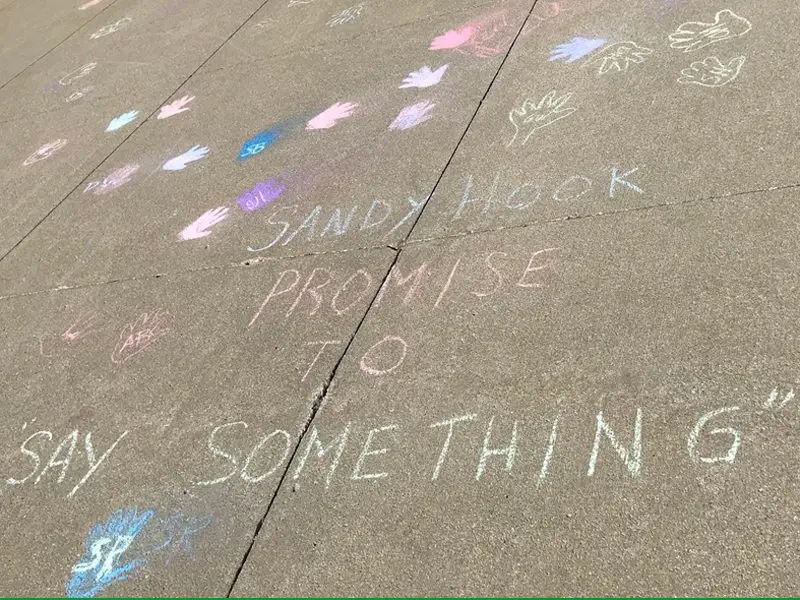 SB
SANDY HOOK
PROMISE
TO
ABC
"SAY SOMETHING"
SP